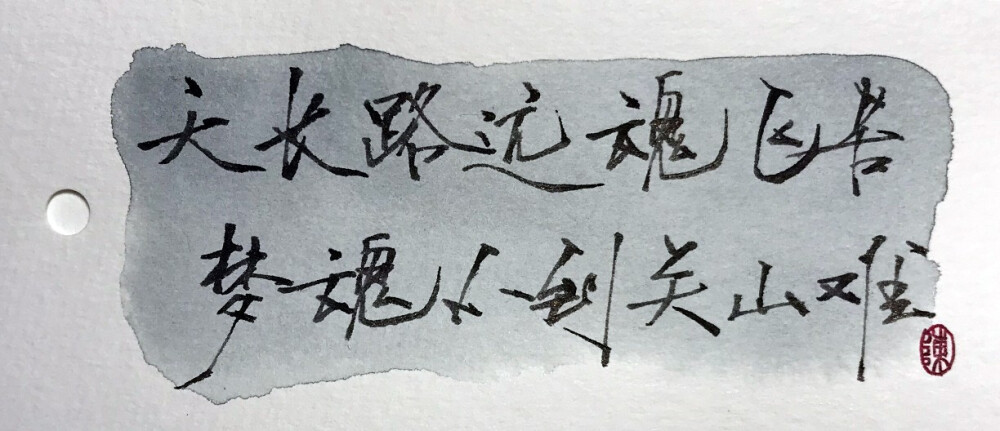 天长路远魂飞苦
梦魂不到关山难
陳